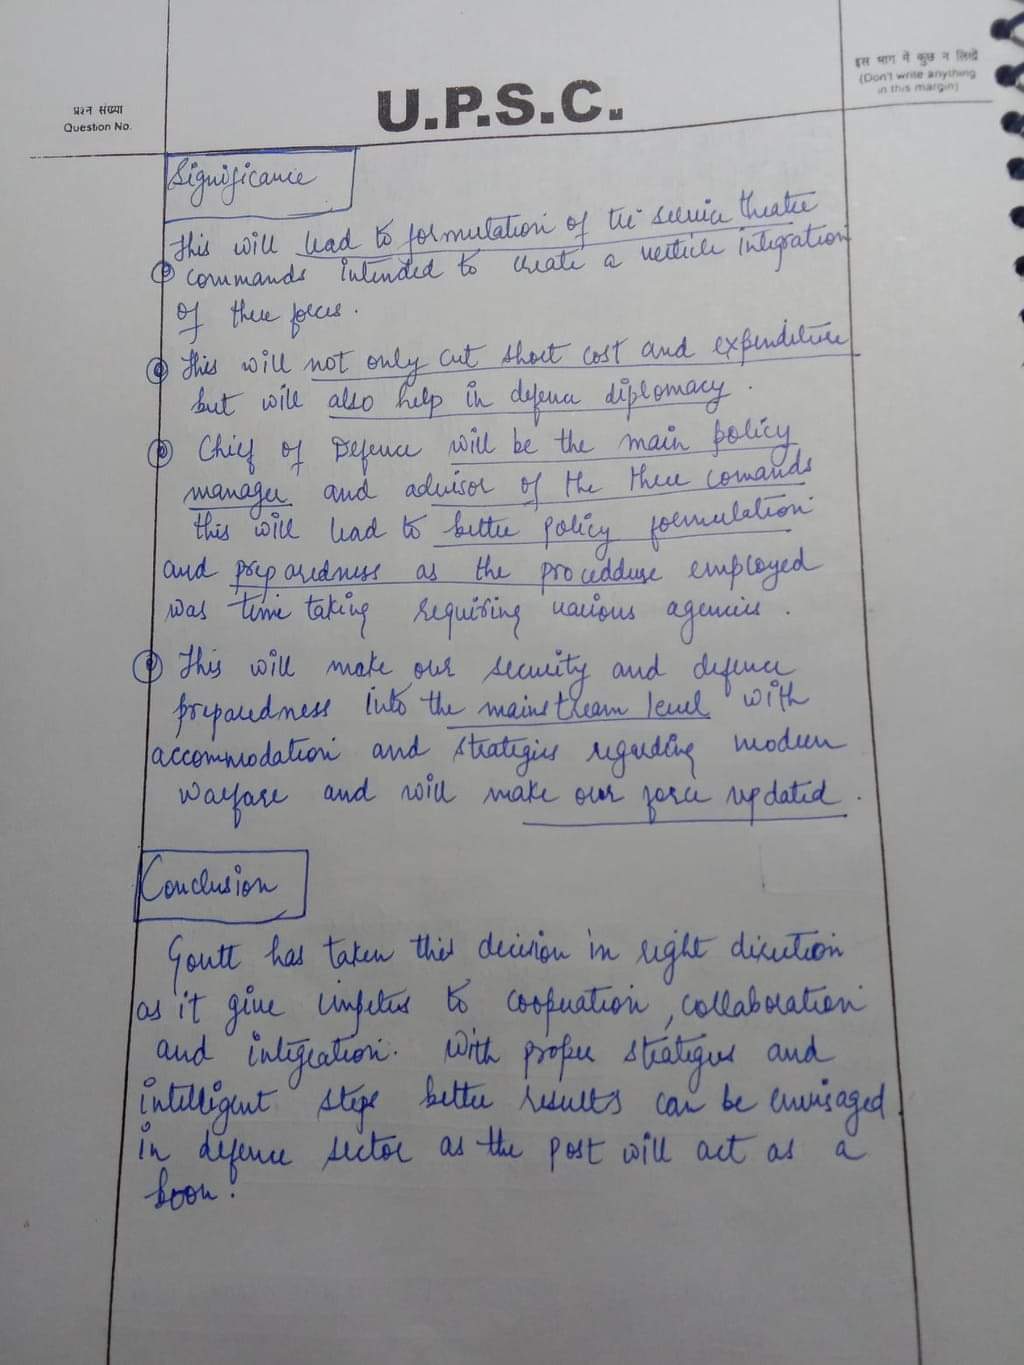 प्रश्न संख्या
Question No.
U.P.S.C.
इस भाग में कुछ न लिखें
(Don't write anything
in this margin)
Significance
This will lead to formulation of tri service theatre
commands intended to create a verticle integration
of three forces.
This will not only cut short cost and expenditure
but will also help in defence diplomacy.
Chief of Defence will be the main policy
manager and advisor of the three comands
this will lead to better policy formulation
and preparedness as the proceddure employed
was time taking requiring various agencies.
This will make our security and defence
preparedness into the mainstream level with
accommodation and strategies regarding modern
warfare and will make our force updated.
Conclusion
Govtt has taken this decision in right direction
as it give impetus to cooperation, collaboration
and integration. With proper strategies and
intelligent steps better results can be envisaged
in defence sector as the post will act as a
boon.